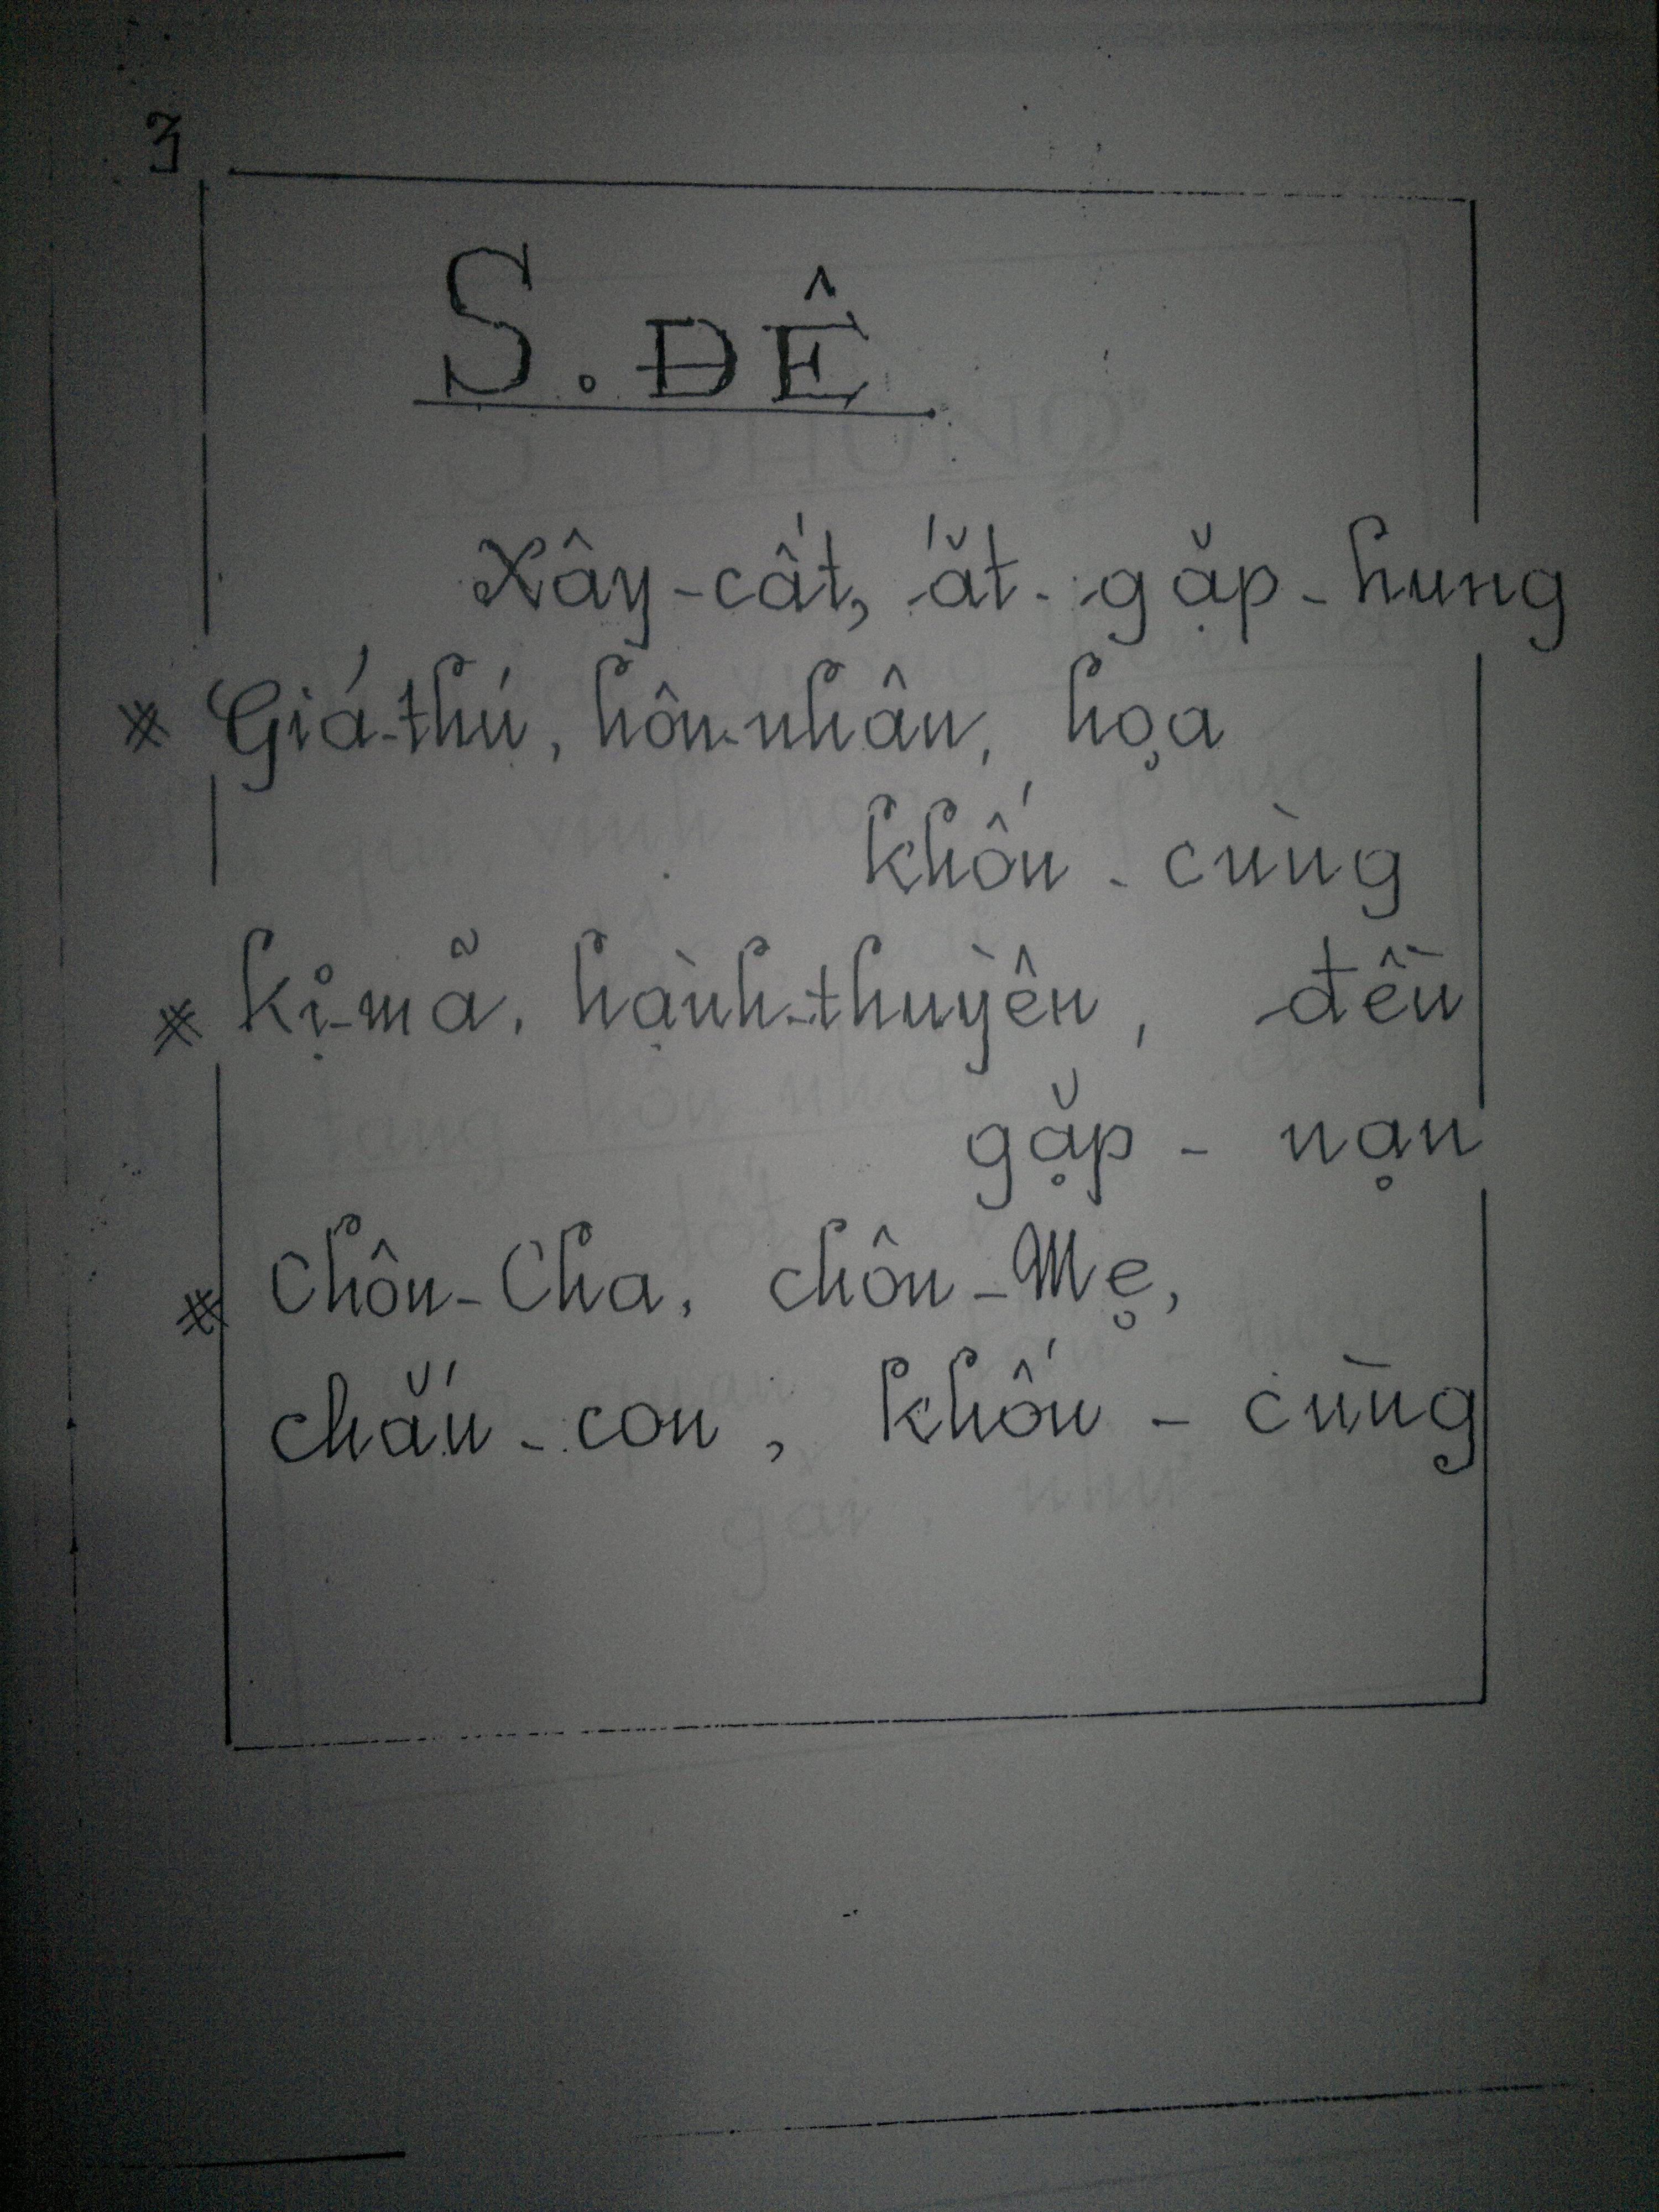 3
S. ĐÊ
Xây-cất, ắt-gặp-hung
* Giá-thú, hôn-nhân, họa
khốn-cùng
* Kị-mã, hành-thuyền, đền
gặp-nạn
* Chôn-Cha, chôn-Mẹ,
chắn-con, khốn-cùng